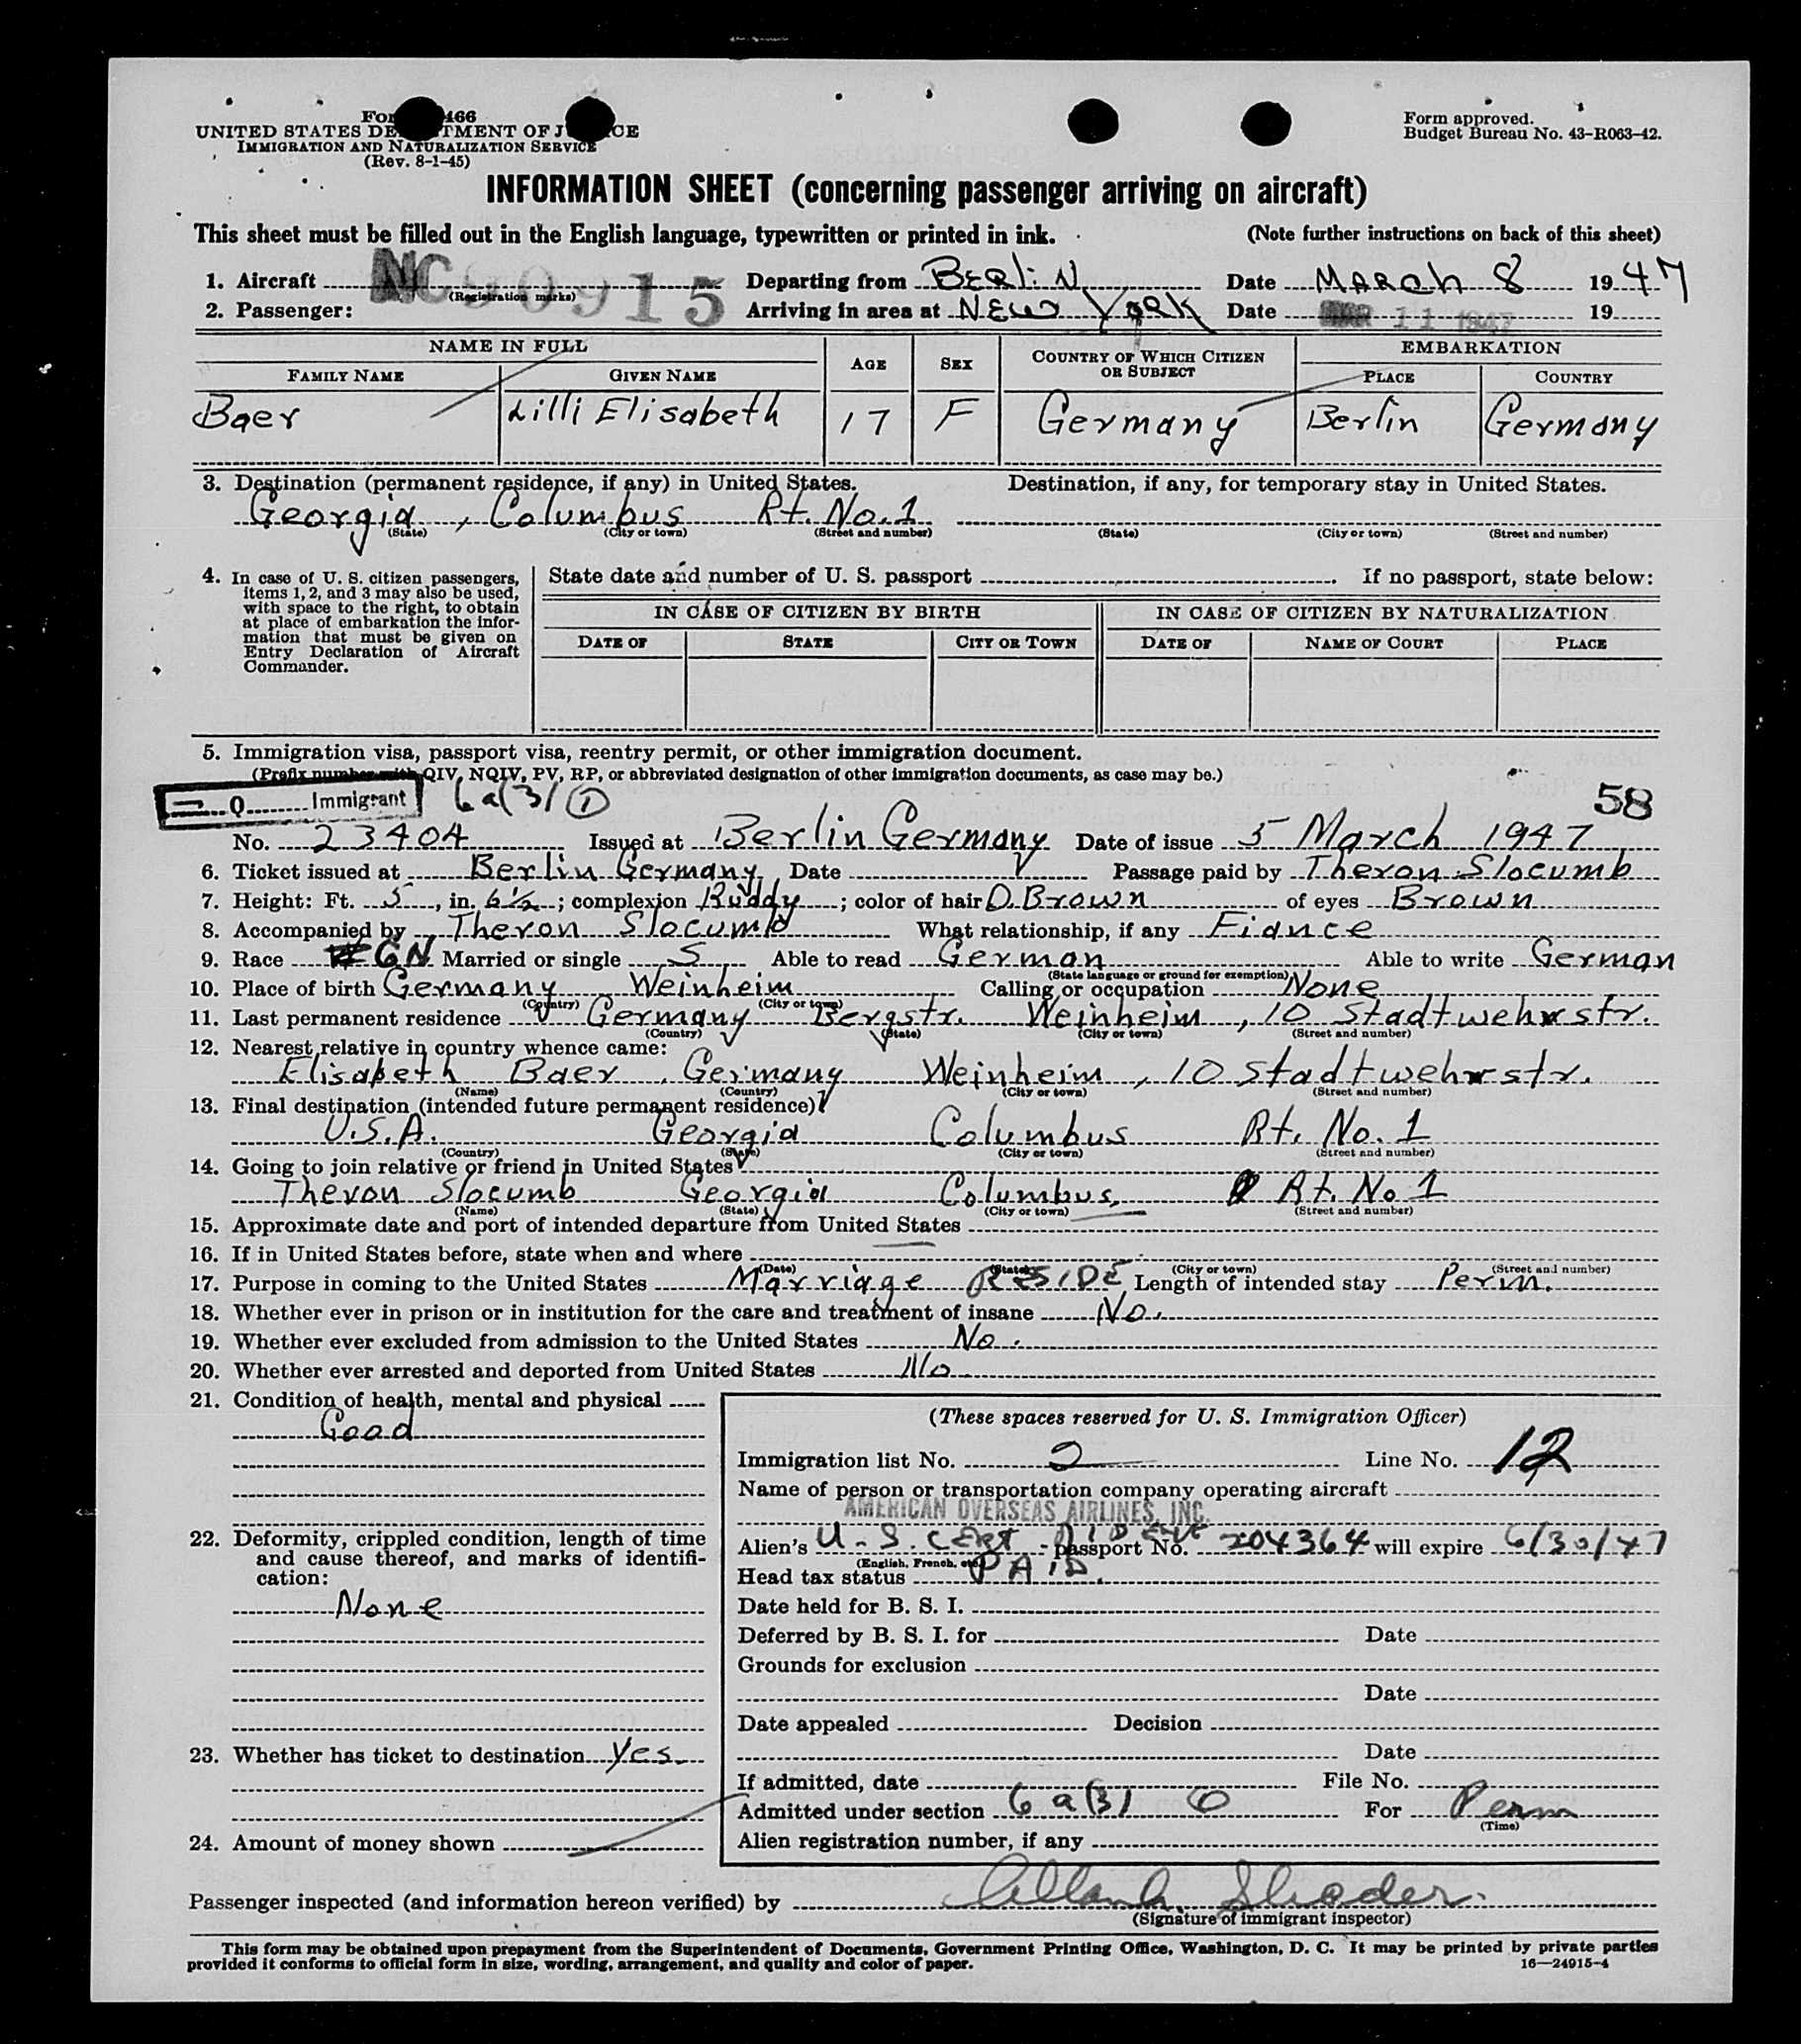 Form 466
UNITED STATES DEPARTMENT OF JUSTICE
IMMIGRATION AND NATURALIZATION SERVICE
(Rev. 8-1-45)
Form approved.
Budget Bureau No. 43-R063-42.
INFORMATION SHEET (concerning passenger arriving on aircraft)
This sheet must be filled out in the English language, typewritten or printed in ink. (Note further instructions on back of this sheet)
1. Aircraft NC90915 (Registration marks) Departing from Berlin Date March 8 1947
2. Passenger: Arriving in area at New York Date MAR 11 1947 19
NAME IN FULL AGE SEX COUNTRY OF WHICH CITIZEN OR SUBJECT EMBARKATION
FAMILY NAME GIVEN NAME PLACE COUNTRY
Baer Lilli Elisabeth 17 F Germany Berlin Germany
3. Destination (permanent residence, if any) in United States. Destination, if any, for temporary stay in United States.
Georgia, Columbus Rt. No. 1
(State) (City or town) (Street and number) (State) (City or town) (Street and number)
4. In case of U. S. citizen passengers, items 1, 2, and 3 may also be used, with space to the right, to obtain at place of embarkation the information that must be given on Entry Declaration of Aircraft Commander.
State date and number of U. S. passport If no passport, state below:
IN CASE OF CITIZEN BY BIRTH IN CASE OF CITIZEN BY NATURALIZATION
DATE OF STATE CITY OR TOWN DATE OF NAME OF COURT PLACE
5. Immigration visa, passport visa, reentry permit, or other immigration document.
(Prefix number with QIV, NQIV, PV, RP, or abbreviated designation of other immigration documents, as case may be.)
Q Immigrant 6a(3) 58
No. 23404 Issued at Berlin Germany Date of issue 5 March 1947
6. Ticket issued at Berlin Germany, Date Passage paid by Theron Slocumb
7. Height: Ft. 5, in. 6½; complexion Ruddy; color of hair D. Brown of eyes Brown
8. Accompanied by Theron Slocumb What relationship, if any Fiance
9. Race GN Married or single S Able to read German Able to write German
(State language or ground for exemption)
10. Place of birth Germany Weinheim Calling or occupation None
(Country) (City or town)
11. Last permanent residence Germany Bergstr. Weinheim, 10 Stadtwehrstr.
(Country) (State) (City or town) (Street and number)
12. Nearest relative in country whence came:
Elisabeth Baer, Germany Weinheim, 10 Stadtwehrstr.
(Name) (Country) (City or town) (Street and number)
13. Final destination (intended future permanent residence)
U.S.A. Georgia Columbus Rt. No. 1
(Country) (State) (City or town) (Street and number)
14. Going to join relative or friend in United States
Theron Slocumb Georgia Columbus, Rt. No 1
(Name) (State) (City or town) (Street and number)
15. Approximate date and port of intended departure from United States
16. If in United States before, state when and where
(Date) (State) (City or town) (Street and number)
17. Purpose in coming to the United States Marriage RESIDE Length of intended stay Perm.
18. Whether ever in prison or in institution for the care and treatment of insane No.
19. Whether ever excluded from admission to the United States No.
20. Whether ever arrested and deported from United States No
21. Condition of health, mental and physical
Good
22. Deformity, crippled condition, length of time and cause thereof, and marks of identification:
None
23. Whether has ticket to destination Yes
24. Amount of money shown
(These spaces reserved for U. S. Immigration Officer)
Immigration list No. 2 Line No. 12
Name of person or transportation company operating aircraft
AMERICAN OVERSEAS AIRLINES, INC.
Alien's U.S. CERT passport No. 204364 will expire 6/30/47
(English, French, etc.)
Head tax status PAID.
Date held for B. S. I.
Deferred by B. S. I. for Date
Grounds for exclusion
Date
Date appealed Decision
Date
If admitted, date File No.
Admitted under section 6a(3) For Perm
(Time)
Alien registration number, if any
Passenger inspected (and information hereon verified) by
(Signature of immigrant inspector)
This form may be obtained upon prepayment from the Superintendent of Documents, Government Printing Office, Washington, D. C. It may be printed by private parties
provided it conforms to official form in size, wording, arrangement, and quality and color of paper. 16—24915-4